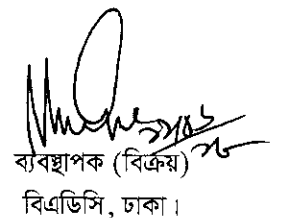 ব্যবস্থাপক (বিক্রয়)
বিএডিসি, ঢাকা।